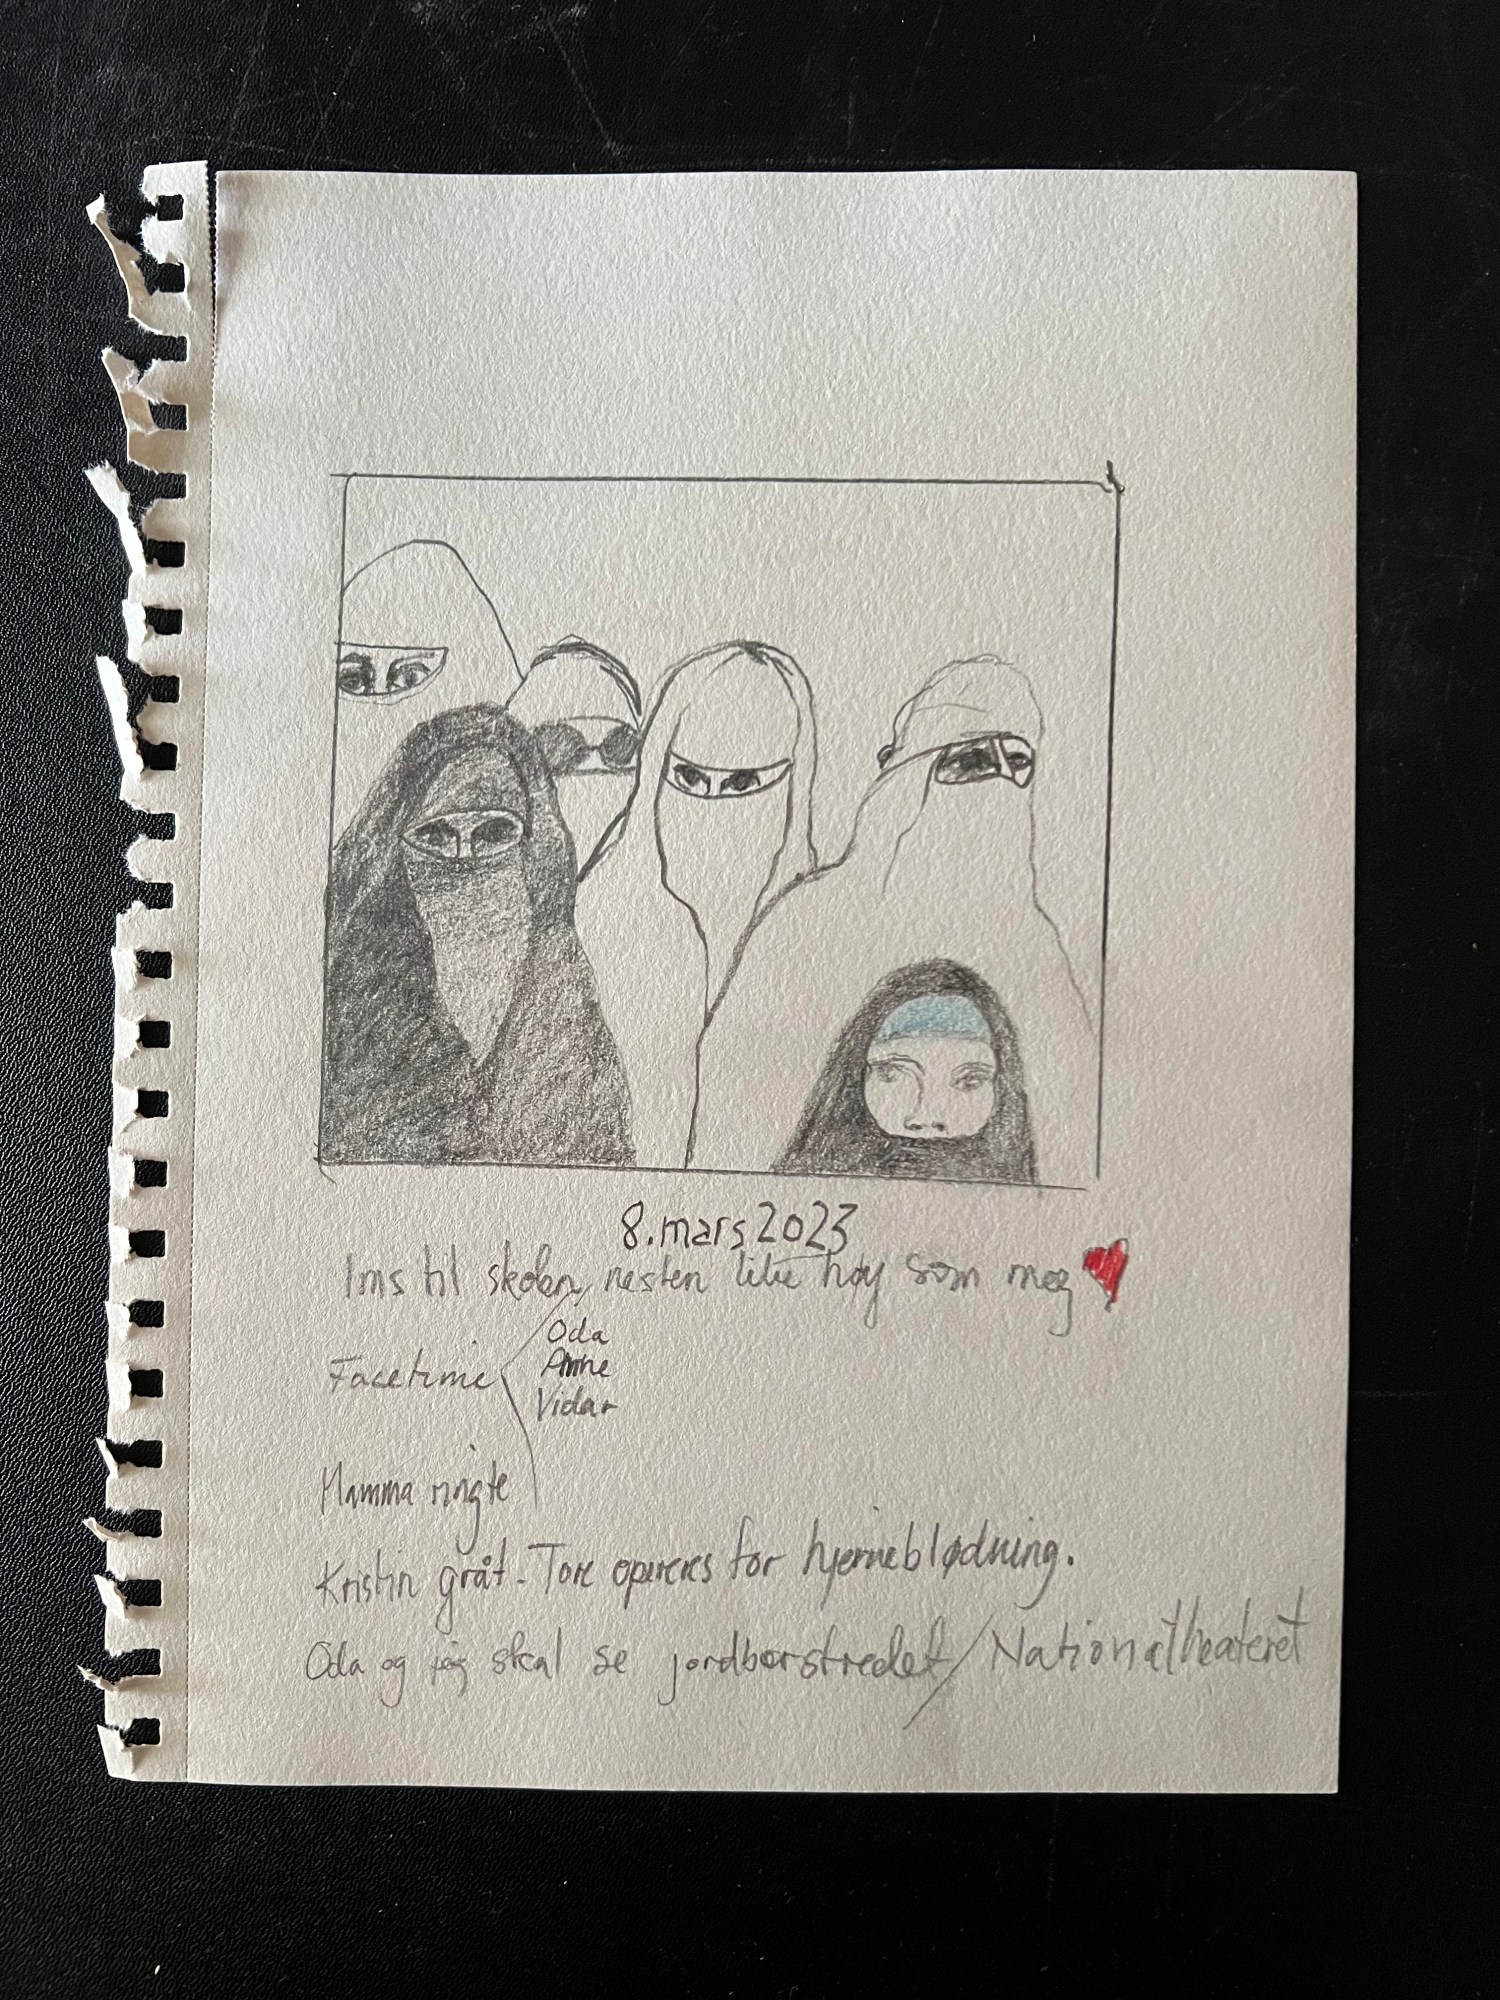 8. mars 2023
Ims til skolen, nesten like høy som meg
Facetime
Oda
Anne
Vidar
Mamma ringte
Kristin gråt - Tore opereres for hjerneblødning.
Oda og jeg skal se jordbærstredet / Nationaltheateret